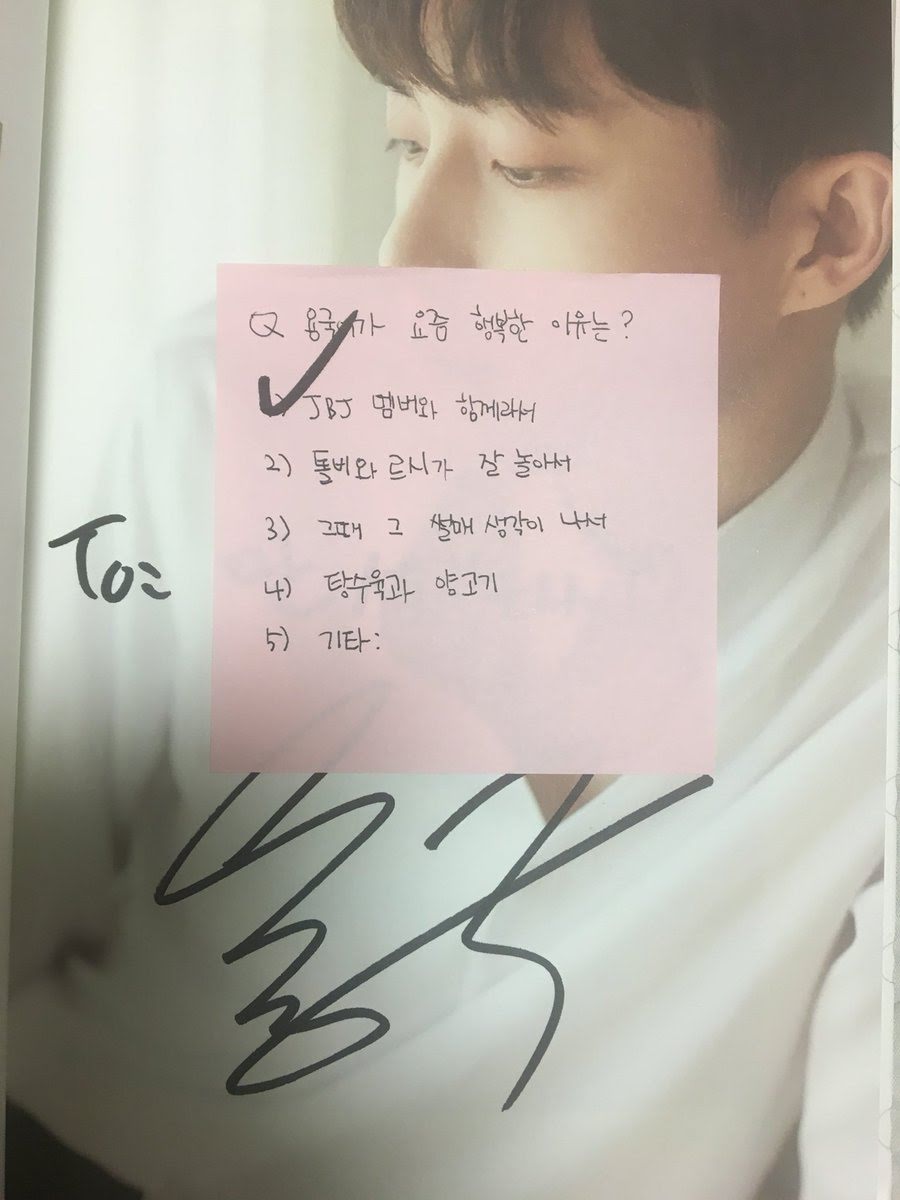 Q 용국이가 요즘 행복한 이유는?
JBJ 멤버와 함께라서
2) 톨비와 르시가 잘 놀아서
3) 그때 그 썰매 생각이 나서
4) 탕수육과 양고기
5) 기타:
To: